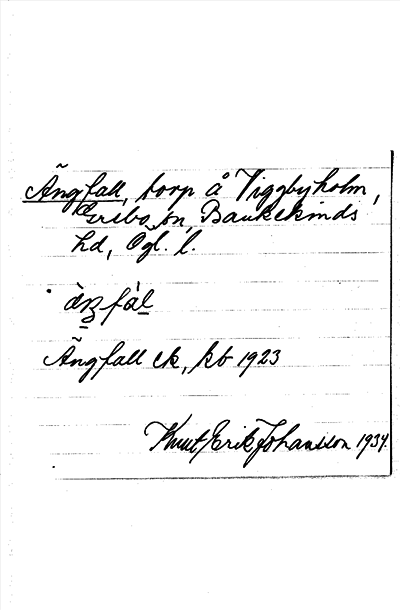 Ängfall, torp å Viggbyholm,
Grebo sn, Bankekinds
hd, Ögl. l.
Ängfall ek, kb 1923
Knut Erik Johansson 1934.